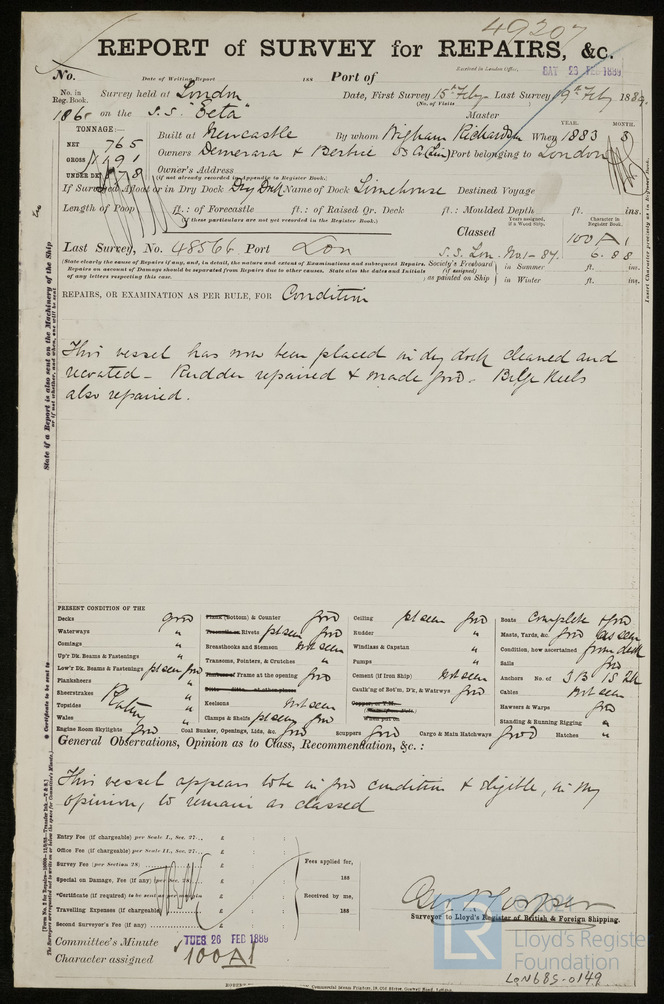 49207
REPORT of SURVEY for REPAIRS, &c.
No. Date of Writing Report 188 Port of Received in London Office, SAT 23 FEB 1889
No. in Reg. Book. Survey held at London Date, First Survey 15th Feby Last Survey 19th Feby 1889.
(No. of Visits)
186 on the S.S. "Eeta" Master
TONNAGE:— YEAR. MONTH.
NET 765 Built at Newcastle By whom Wigham Richardson When 1883 8
GROSS 1191 Owners Demerara & Berbice Port belonging to London
UNDER DK Owner's Address
(If not already recorded in Appendix to Register Book.)
If Surveyed Afloat or in Dry Dock Dry Dock Name of Dock Limehouse Destined Voyage
Length of Poop ft.: of Forecastle ft.: of Raised Qr. Deck ft.: Moulded Depth ft. ins.
(If these particulars are not yet recorded in the Register Book.)
Years assigned, if a Wood Ship. Character in Register Book.
Classed 100 A 1
Last Survey, No. 48566 Port Lon S.S. Lon. No. 1 - 87. 6. 88
(State clearly the cause of Repairs if any, and, in detail, the nature and extent of Examinations and subsequent Repairs.
Repairs on account of Damage should be separated from Repairs due to other causes. State also the dates and Initials
of any letters respecting this case.
Society's Freeboard (if assigned) as painted on Ship in Summer ft. ins.
in Winter ft. ins.
REPAIRS, OR EXAMINATION AS PER RULE, FOR Condition
This vessel has now been placed in dry dock cleaned and
recoated - Rudder repaired & made good - Bilge Keels
also repaired.
PRESENT CONDITION OF THE
Decks good
Waterways "
Comings "
Up'r Dk. Beams & Fastenings "
Low'r Dk. Beams & Fastenings pt seen good
Planksheers
Sheerstrakes
Topsides
Wales
Engine Room Skylights good
Plank (Bottom) & Counter good
Rivets pt seen good
Breasthooks and Stemson not seen
Transoms, Pointers, & Crutches "
of Frame at the opening good
Keelsons not seen
Clamps & Shelfs pt seen good
Coal Bunker, Openings, Lids, &c. good
Ceiling pt seen good
Rudder "
Windlass & Capstan "
Pumps "
Cement (if Iron Ship) not seen
Caulk'ng of Bot'm, D'k, & Watrwys good
Scuppers good
Cargo & Main Hatchways good
Boats Complete & good
Masts, Yards, &c. good as seen
Condition, how ascertained from deck
Sails good
Anchors No. of 3 B 1 S 2 K
Cables not seen
Hawsers & Warps good
Standing & Running Rigging "
Hatches "
General Observations, Opinion as to Class, Recommendation, &c.:
This vessel appears to be in good condition & eligible, in my
opinion, to remain as classed
Entry Fee (if chargeable) per Scale I., Sec. 27... £
Office Fee (if chargeable) per Scale II., Sec. 27... £
Survey Fee (per Section 28) £
Special on Damage, Fee (if any) (per Sec. £
*Certificate (if required) to be sent as per margin
Travelling Expenses (if chargeable) £
Second Surveyor's Fee (if any) £
Fees applied for, 188
Received by me, 188
Surveyor to Lloyd's Register of British & Foreign Shipping.
Committee's Minute TUES 26 FEB 1889
Character assigned 100A1
© 2021
LR
Lloyd's Register
Foundation
LON685-0149
State if a Report is also sent on the Machinery of the Ship
* Certificate to be sent to